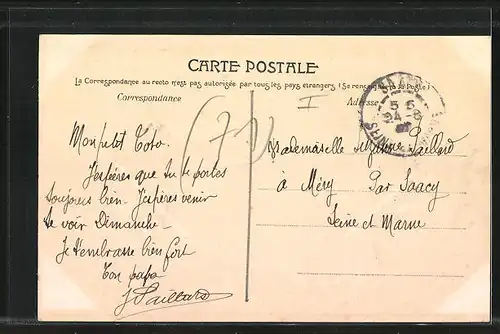 CARTE POSTALE
La Correspondance au recto n'est pas autorisée par tous les pays étrangers (Se renseigner à la Poste)
Correspondance
Adresse
I
(71)
Mon petit Toto.
J'espères que tu te portes
toujours bien. J'espères venir
te voir Dimanche -
Je t'embrasse bien fort
Ton papa
J Paillard
Mademoiselle Paillard
à Méry Par Saacy
Seine et Marne
5 5
24 - 8